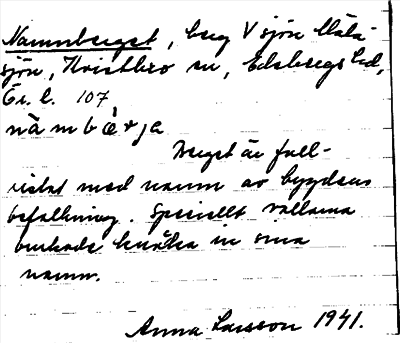 Namnberget, berg V sjön Väla-
sjön, Kvistbro sn, Edsbergs hd,
Ör. l. 107
nàmbæ̀rja
Berget är full-
ristat med namn av bygdens
befolkning. Speciellt vallarna
brukade knåka in sina
namn.
Anna Larsson 1941.